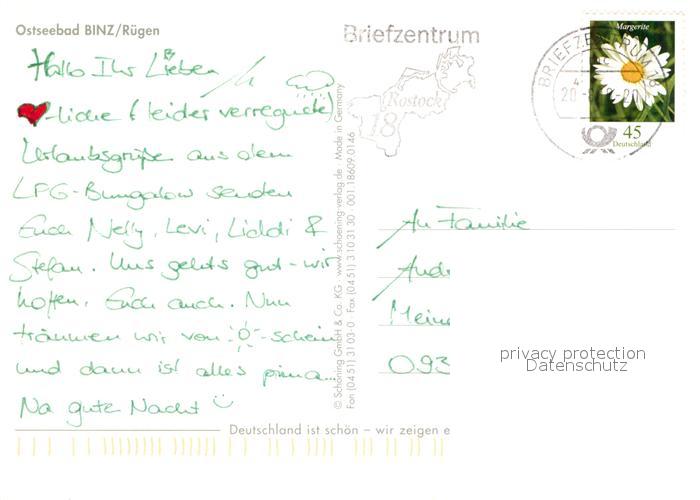 Ostseebad BINZ/Rügen
Hallo Ihr Lieben
-liche (leider verregnete)
Urlaubsgrüße aus dem
LFG-Bungalow senden
Euch Nelly, Levi, Liddi &
Stefan. Uns gehts gut - wir
hoffen, Euch auch. Nun
träumen wir von -schein
und dann ist alles prima...
Na gute Nacht
© Schöning GmbH & Co. KG · www.schoening-verlag.de · Made in Germany
Fon (0451) 31 03-0 Fax (0451) 3 10 31 30 · 001 18609 0146
Deutschland ist schön – wir zeigen e
Briefzentrum
Rostock
18
BRIEFZENTRUM 18
Margerite
45
Deutschland
An Familie
And
Mein
093
privacy protection
Datenschutz